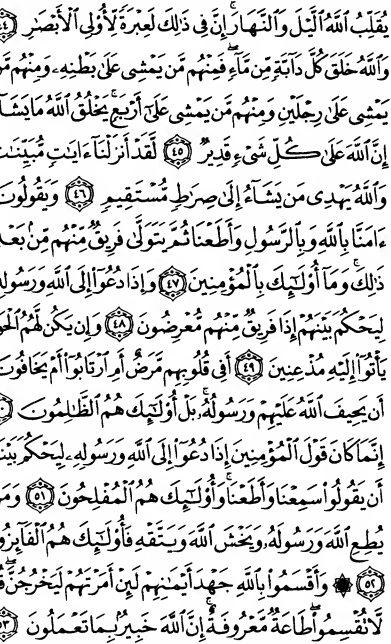 يُقَلِّبُ ٱللَّهُ ٱلَّيْلَ وَٱلنَّهَارَ ۚ إِنَّ فِى ذَٰلِكَ لَعِبْرَةً لِّأُو۟لِى ٱلْأَبْصَٰرِ
وَٱللَّهُ خَلَقَ كُلَّ دَآبَّةٍ مِّن مَّآءٍ ۖ فَمِنْهُم مَّن يَمْشِى عَلَىٰ بَطْنِهِۦ وَمِنْهُم
يَمْشِى عَلَىٰ رِجْلَيْنِ وَمِنْهُم مَّن يَمْشِى عَلَىٰٓ أَرْبَعٍ ۚ يَخْلُقُ ٱللَّهُ مَا يَشَآ
إِنَّ ٱللَّهَ عَلَىٰ كُلِّ شَىْءٍ قَدِيرٌ ۝٤٥ لَّقَدْ أَنزَلْنَآ ءَايَٰتٍ مُّبَيِّنَٰتٍ
وَٱللَّهُ يَهْدِى مَن يَشَآءُ إِلَىٰ صِرَٰطٍ مُّسْتَقِيمٍ ۝٤٦ وَيَقُولُونَ
ءَامَنَّا بِٱللَّهِ وَبِٱلرَّسُولِ وَأَطَعْنَا ثُمَّ يَتَوَلَّىٰ فَرِيقٌ مِّنْهُم مِّنۢ بَعْدِ
ذَٰلِكَ ۚ وَمَآ أُو۟لَٰٓئِكَ بِٱلْمُؤْمِنِينَ ۝٤٧ وَإِذَا دُعُوٓا۟ إِلَى ٱللَّهِ وَرَسُولِهِ
لِيَحْكُمَ بَيْنَهُمْ إِذَا فَرِيقٌ مِّنْهُم مُّعْرِضُونَ ۝٤٨ وَإِن يَكُن لَّهُمُ ٱلْحَقُّ
يَأْتُوٓا۟ إِلَيْهِ مُذْعِنِينَ ۝٤٩ أَفِى قُلُوبِهِم مَّرَضٌ أَمِ ٱرْتَابُوٓا۟ أَمْ يَخَافُونَ
أَن يَحِيفَ ٱللَّهُ عَلَيْهِمْ وَرَسُولُهُۥ ۚ بَلْ أُو۟لَٰٓئِكَ هُمُ ٱلظَّٰلِمُونَ
إِنَّمَا كَانَ قَوْلَ ٱلْمُؤْمِنِينَ إِذَا دُعُوٓا۟ إِلَى ٱللَّهِ وَرَسُولِهِۦ لِيَحْكُمَ بَيْنَ
أَن يَقُولُوا۟ سَمِعْنَا وَأَطَعْنَا ۚ وَأُو۟لَٰٓئِكَ هُمُ ٱلْمُفْلِحُونَ ۝٥١ وَمَن
يُطِعِ ٱللَّهَ وَرَسُولَهُۥ وَيَخْشَ ٱللَّهَ وَيَتَّقْهِ فَأُو۟لَٰٓئِكَ هُمُ ٱلْفَآئِزُو
۝٥٢ ۞ وَأَقْسَمُوا۟ بِٱللَّهِ جَهْدَ أَيْمَٰنِهِمْ لَئِنْ أَمَرْتَهُمْ لَيَخْرُجُنَّ ۖ
لَّا تُقْسِمُوا۟ ۖ طَاعَةٌ مَّعْرُوفَةٌ ۚ إِنَّ ٱللَّهَ خَبِيرٌۢ بِمَا تَعْمَلُونَ ۝٥٣